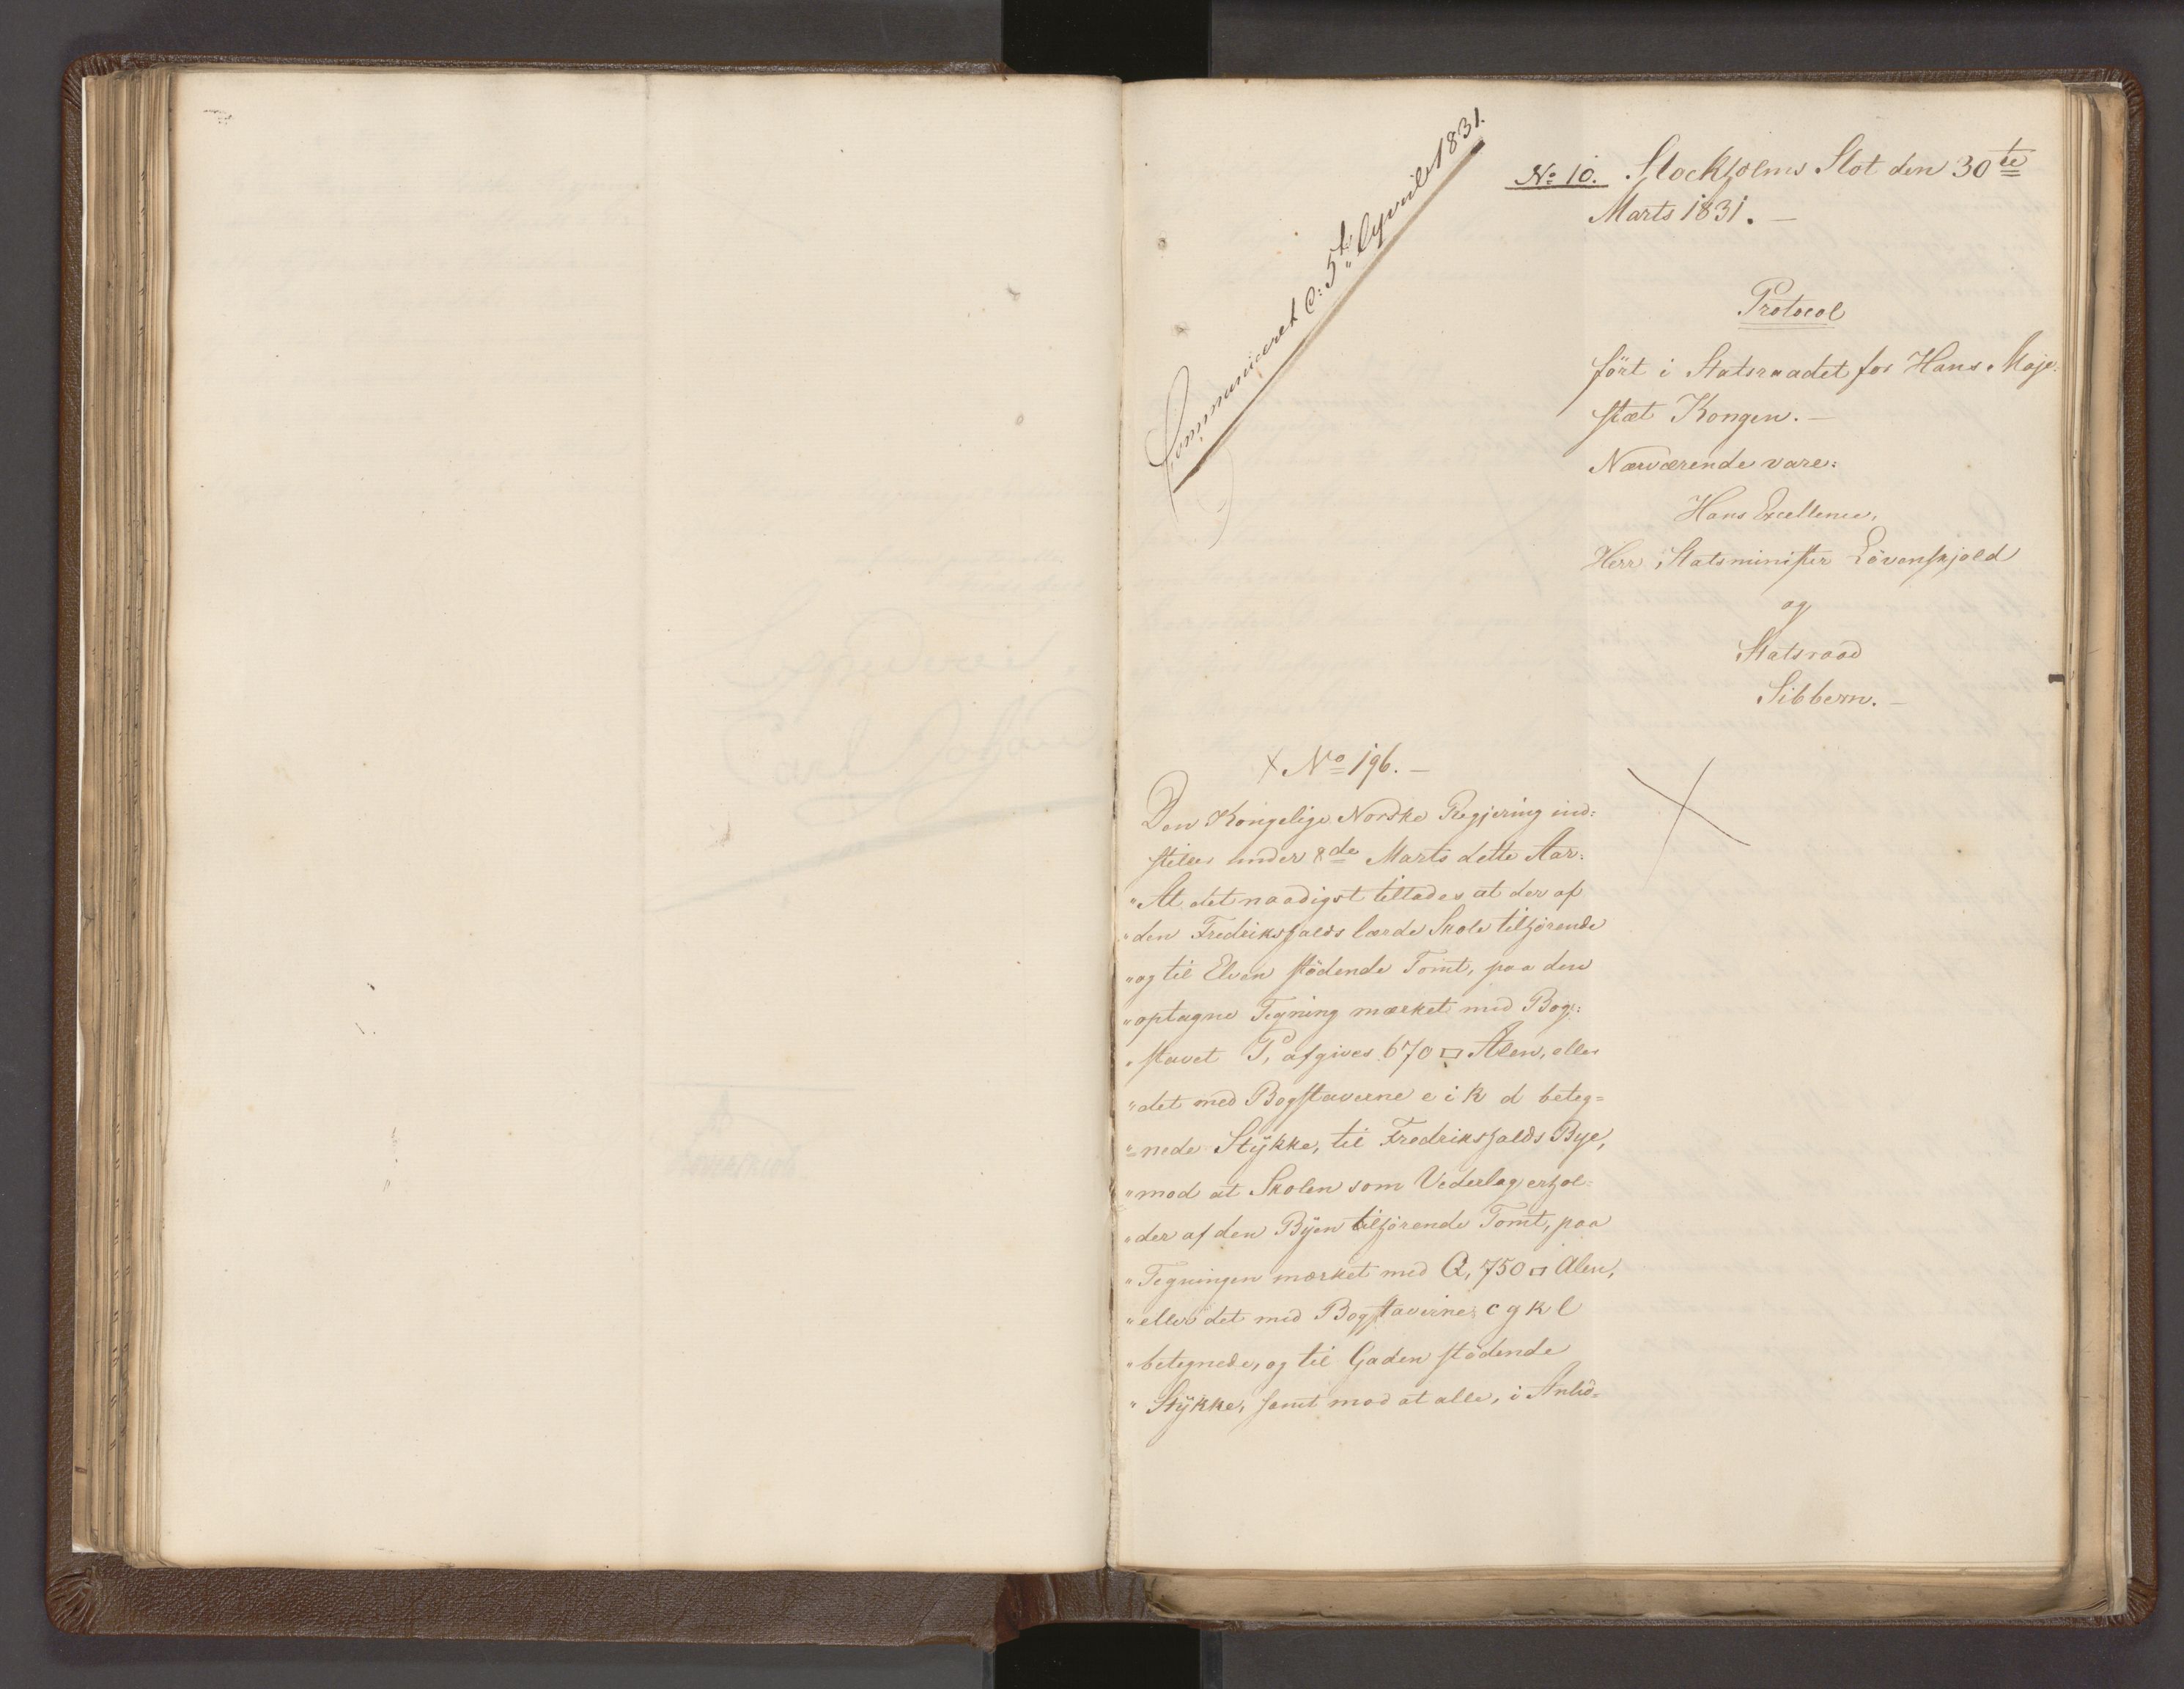 Communiceret C: 5t April 1831.
No 10. Stockholms Slot den 30te
Marts 1831. —
Protocol
fört i Statsraadet for Hans Maje-
stæt Kongen. —
Nærværende vare:
Hans Excellence,
Herr Statsminister Lövenskjold
og
Statsraad
Sibbern. —
× No 196. —
Den Kongelige Norske Regjering ind-
stiller under 8de Marts dette Aar:
"At det naadigst tillades at der af
"den Fredrikshalds lærde Skole tilhörende
"og til Elven stödende Tomt, paa den
"optagne Tegning mærket med Bog-
"stavet P, afgives 670 □ Alen, eller
"det med Bogstaverne e i k d beteg-
"nede Stÿkke, til Fredrikshalds Bye,
"mod at Skolen som Vederlag erhol-
"der af den Bÿen tilhörende Tomt, paa
"Tegningen mærket med Q, 750 □ Alen,
"eller det med Bogstaverne c g k l
"betegnede, og til Gaden stödende
"Stÿkke, samt mod at alle, i Anled-